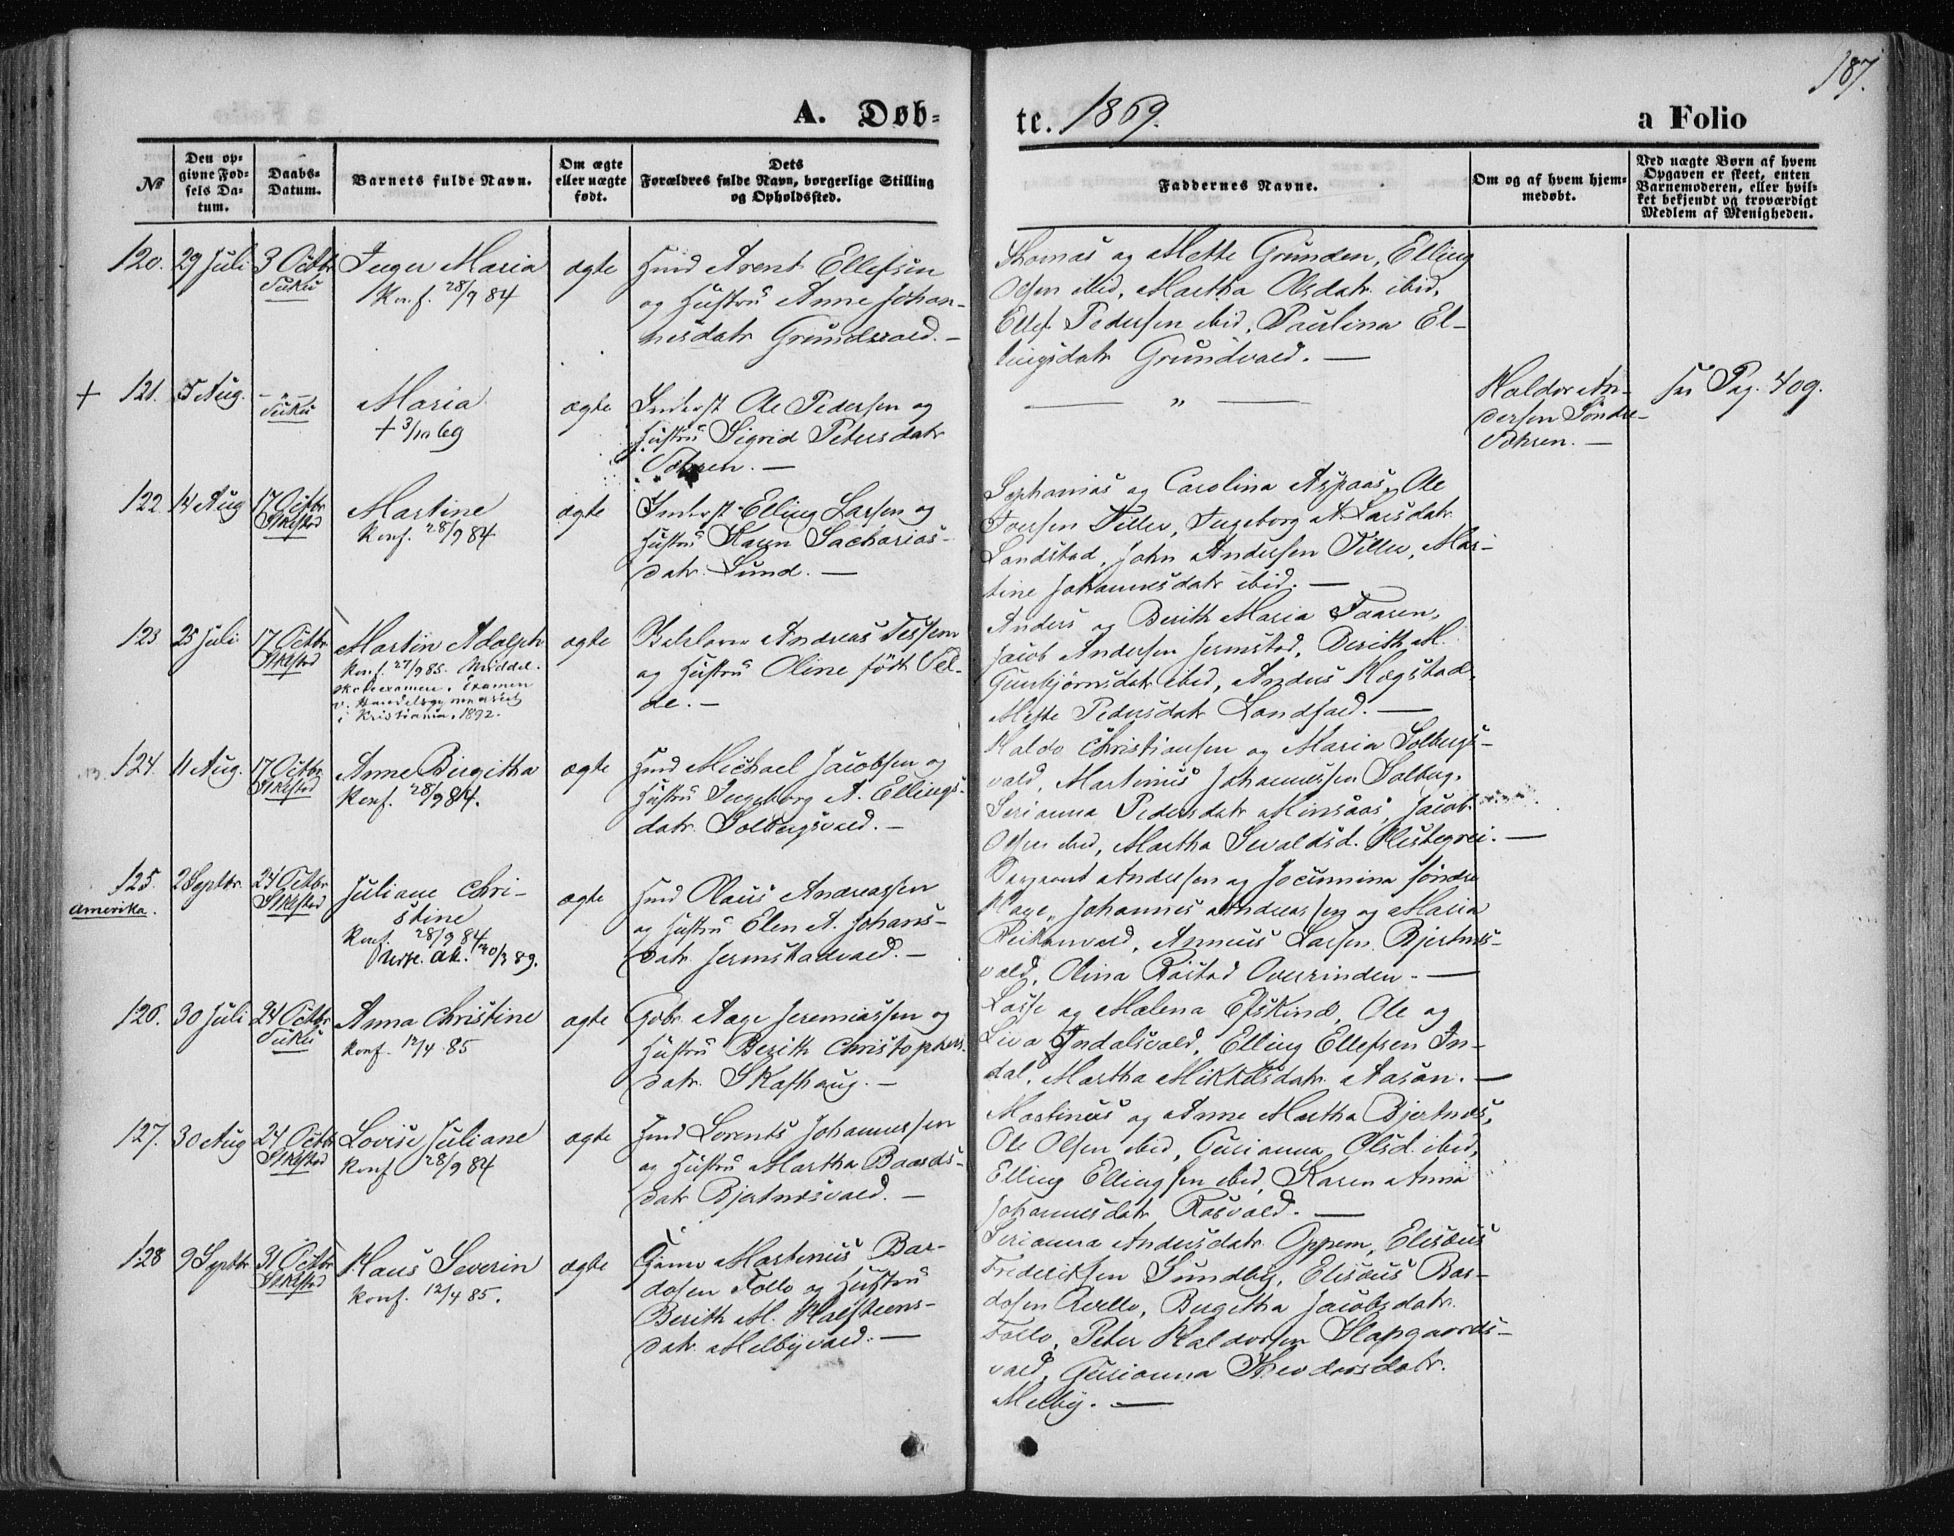 187.
A. Døb-
te. 1869.
a Folio
№
Den op-
givne Fød-
sels Da-
tum.
Daabs-
Datum.
Barnets fulde Navn.
Om ægte
eller uægte
født.
Dets
Forældres fulde Navn, borgerlige Stilling
og Opholdssted.
Faddernes Navne.
Om og af hvem hjem-
medøbt.
Ved uægte Børn af hvem
Opgaven er skeet, enten
Barnemoderen, eller hvil-
ket bekjendt og troværdigt
Medlem af Menigheden.
120. 29 Juli 3 Octbr Inger Maria ægte
Konf. 28/9 84
Hmd Arent Ellefsen
og Hustru Anne Johan-
nesdatr Grundvald. —
Thomas og Mette Grunden, Elling
Olsen ibid, Martha Olsdatr ibid,
Ellef Pedersen ibid, Paulina El-
lingsdatr Grundvald. —
+ 121. 5 Aug. Maria ægte
+ 3/10 69
Inderst Ole Pedersen og
Hustru Sigrid Petersdatr
— " —
Haldor An-
dersen Søndre
Pag. 409.
122 14 Aug 17 Octbr Martine ægte
Konf. 28/9 84
Inderst Elling Larsen og
Hustru Karen Sacharias-
datr. Lund. —
Sephanias og Carolina Aspaas, Ole
Iversen Tiller, Ingeborg A. Larsdatr
Landstad, John Andersen Tiller, Mar-
tine Johannesdatr ibid. —
123 25 Juli 17 Octbr Martin Adolph ægte
Konf. 27/9 85. Middel-
skoleexamen. Examen
v. Handelsgymnasiet
i Kristiania, 1892.
Andreas Tessem
og Hustru Oline født Vel-
de. —
Anders og Berith Maria Faaren,
Jacob Andersen Jermstad, Berith M.
Gunbjørnsdatr ibid, Anders Hegstad,
Mette Pedersdatr Landfald. —
124. 11 Aug. 17 Octbr Anne Birgitha ægte
Konf. 28/9 84.
Hmd Michael Jacobsen og
Hustru Ingeborg A. Ellings-
datr. Solbergsvald. —
Haldo Christiansen og Maria Solbergs-
vald, Martinus Johannessen Solberg,
Serianna Pedersdatr Minsaas, Jacob
Olsen ibid, Martha Sivaldsd. Hestegrei. —
125. 2 Septbr. 24 Octbr Juliane Chri-
stine ægte
Amerika.
Konf. 28/9 84
Hmd Olaus Andreassen
og Hustru Elen A. Johans-
datr Jermstadvald. —
Andersen og Jocumina søndre
Hage, Johannes Andreassen og Maria
Larsen Bjertnes-
vald, Olina Røstad Overrinden. —
126. 30 Juli 24 Octbr Anna Christine ægte
Konf. 12/4 85
Gbr. Aage Jeremiassen og
Hustru Berith Christophers-
datr. Skafhaug. —
Lasse og Malena Efskind, Ole og
Liva Indalsvald, Elling Ellefsen In-
dal, Martha Mikkelsdatr Aasan. —
127. 30 Aug 24 Octbr Lovise Juliane ægte
Konf. 28/9 84
Hmd Lorents Johannessen
og Hustru Martha Baards-
datr Bjertnesvald. —
Martinus og Anne Martha Bjertnes,
Ole Olsen ibid, Gurianna Olsd. ibid,
Elling Ellingsen ibid, Karen Anna
Johannesdatr Rosvald. —
128 9 Septbr 31 Octbr Haus Severin ægte
Konf. 12/4 85.
Martinus Bar-
dosen Follo og Hustru
Berith M. Halfstens-
datr Melbyvald. —
Serianna Andersdatr Oppem, Elisæus
Frideriksen Sundby, Elisæus Bar-
dosen Birgitha Jacobsdatr.
Follo, Peter Haldorsen Slapgaards-
vald, Gurianna Theodorsdatr.
Melby. —